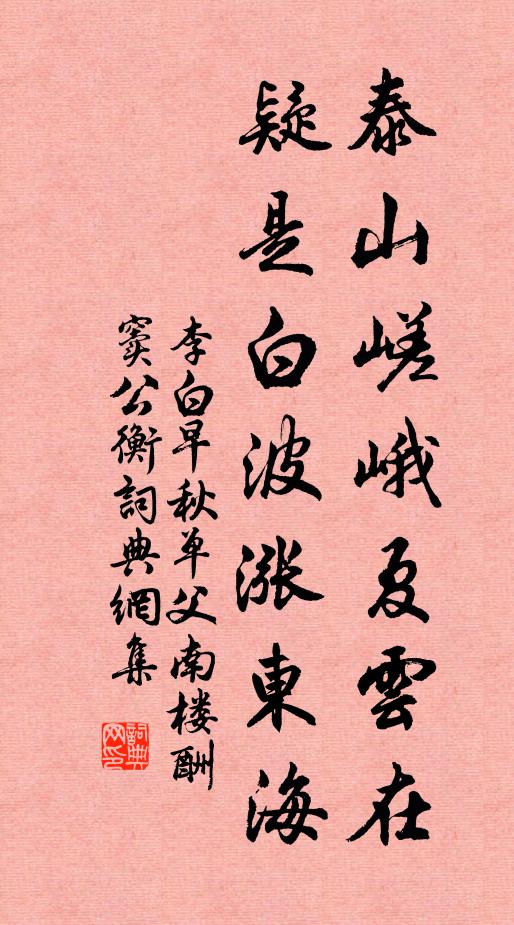 泰山嵯峨夏雲在
疑是白波漲東海
李白早秋单父南楼酬
竇公衡詞典網集
詞典网印